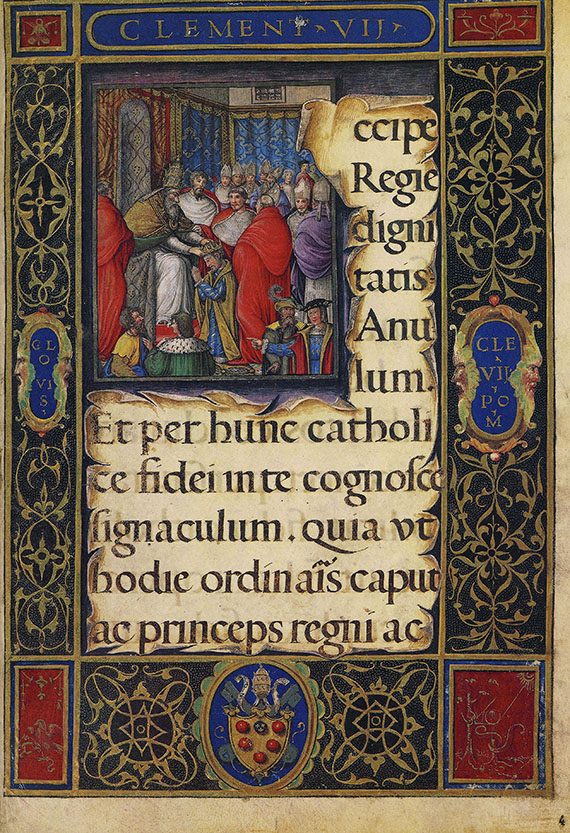 CLEMENT · VIJ
ccipe
Regie
digni
tatis
Anu
lum.
CLO
VIS.
CLE
VII
PO
M
Et per hunc catholi
ce fidei in te cognoſce
ſignaculum . quia vt
hodie ordinaĩs caput
ac princeps regni ac
4